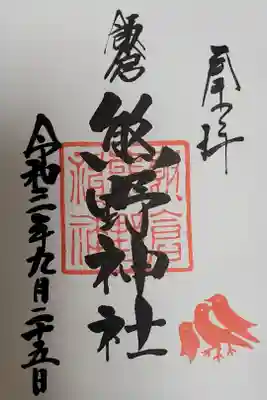 奉拝
鎌倉
熊野神社
令和二年九月二十五日